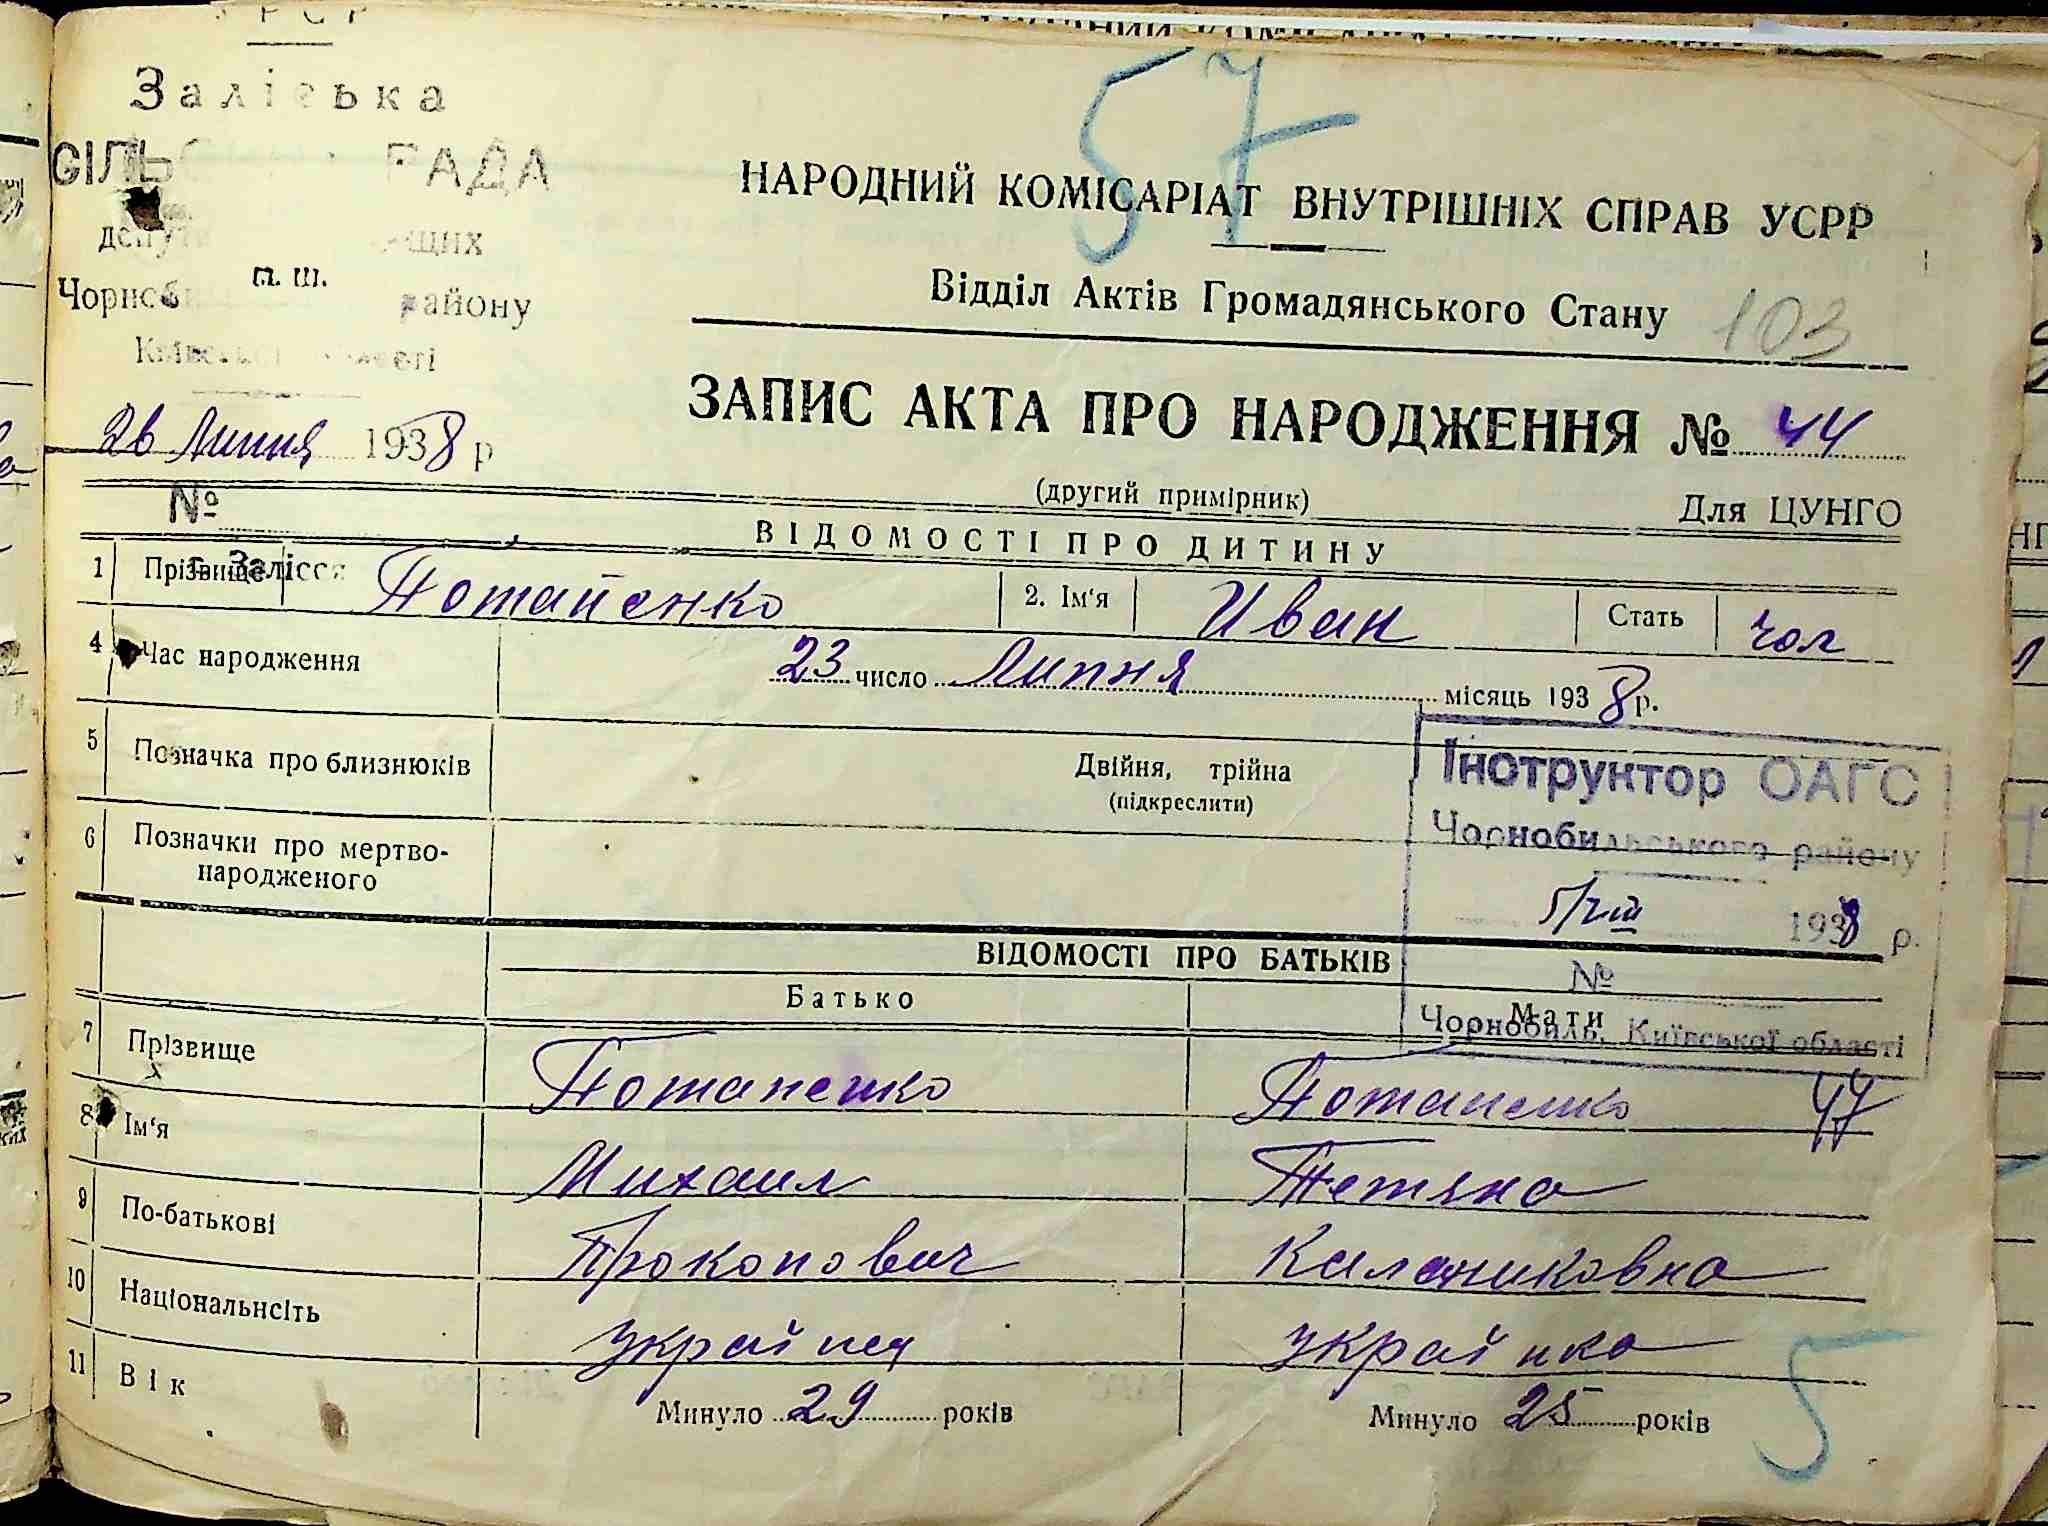 РСР
Заліська
СІЛЬС РАДА
депут ящих
п. ш.
Чорноб району
Київс області
26 Липня 1938 р
№
с. Залісся
57
НАРОДНИЙ КОМІСАРІАТ ВНУТРІШНІХ СПРАВ УСРР
Відділ Актів Громадянського Стану 103
ЗАПИС АКТА ПРО НАРОДЖЕННЯ № 44
(другий примірник) Для ЦУНГО
ВІДОМОСТІ ПРО ДИТИНУ
1 Прізвище Потапенко 2. Ім'я Иван Стать чол
4 Час народження 23 число Липня місяць 1938 р.
5 Позначка про близнюків Двійня, трійна
(підкреслити)
6 Позначки про мертво-
народженого
Інструктор ОАГС
Чорнобильського району
5/VІІІ 1938 р.
№
Чорнобиль, Київської області
ВІДОМОСТІ ПРО БАТЬКІВ
Батько Мати
7 Прізвище Потапенко Потапенко 47
8 Ім'я Михаил Тетяна
9 По-батькові Прокопович Калениковна
10 Національнсіть Украйнец Украйнка
11 Вік Минуло 29 років Минуло 25 років
5